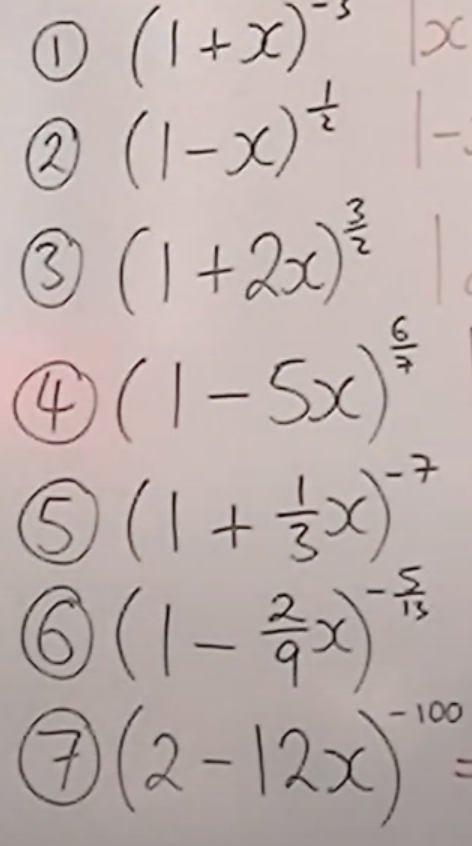 ① (1+x)^-3 |x
② (1-x)^1/2 |-
③ (1+2x)^3/2 |
④ (1-5x)^6/7
⑤ (1+1/3x)^-7
⑥ (1-2/9x)^-5/13
⑦ (2-12x)^-100 =